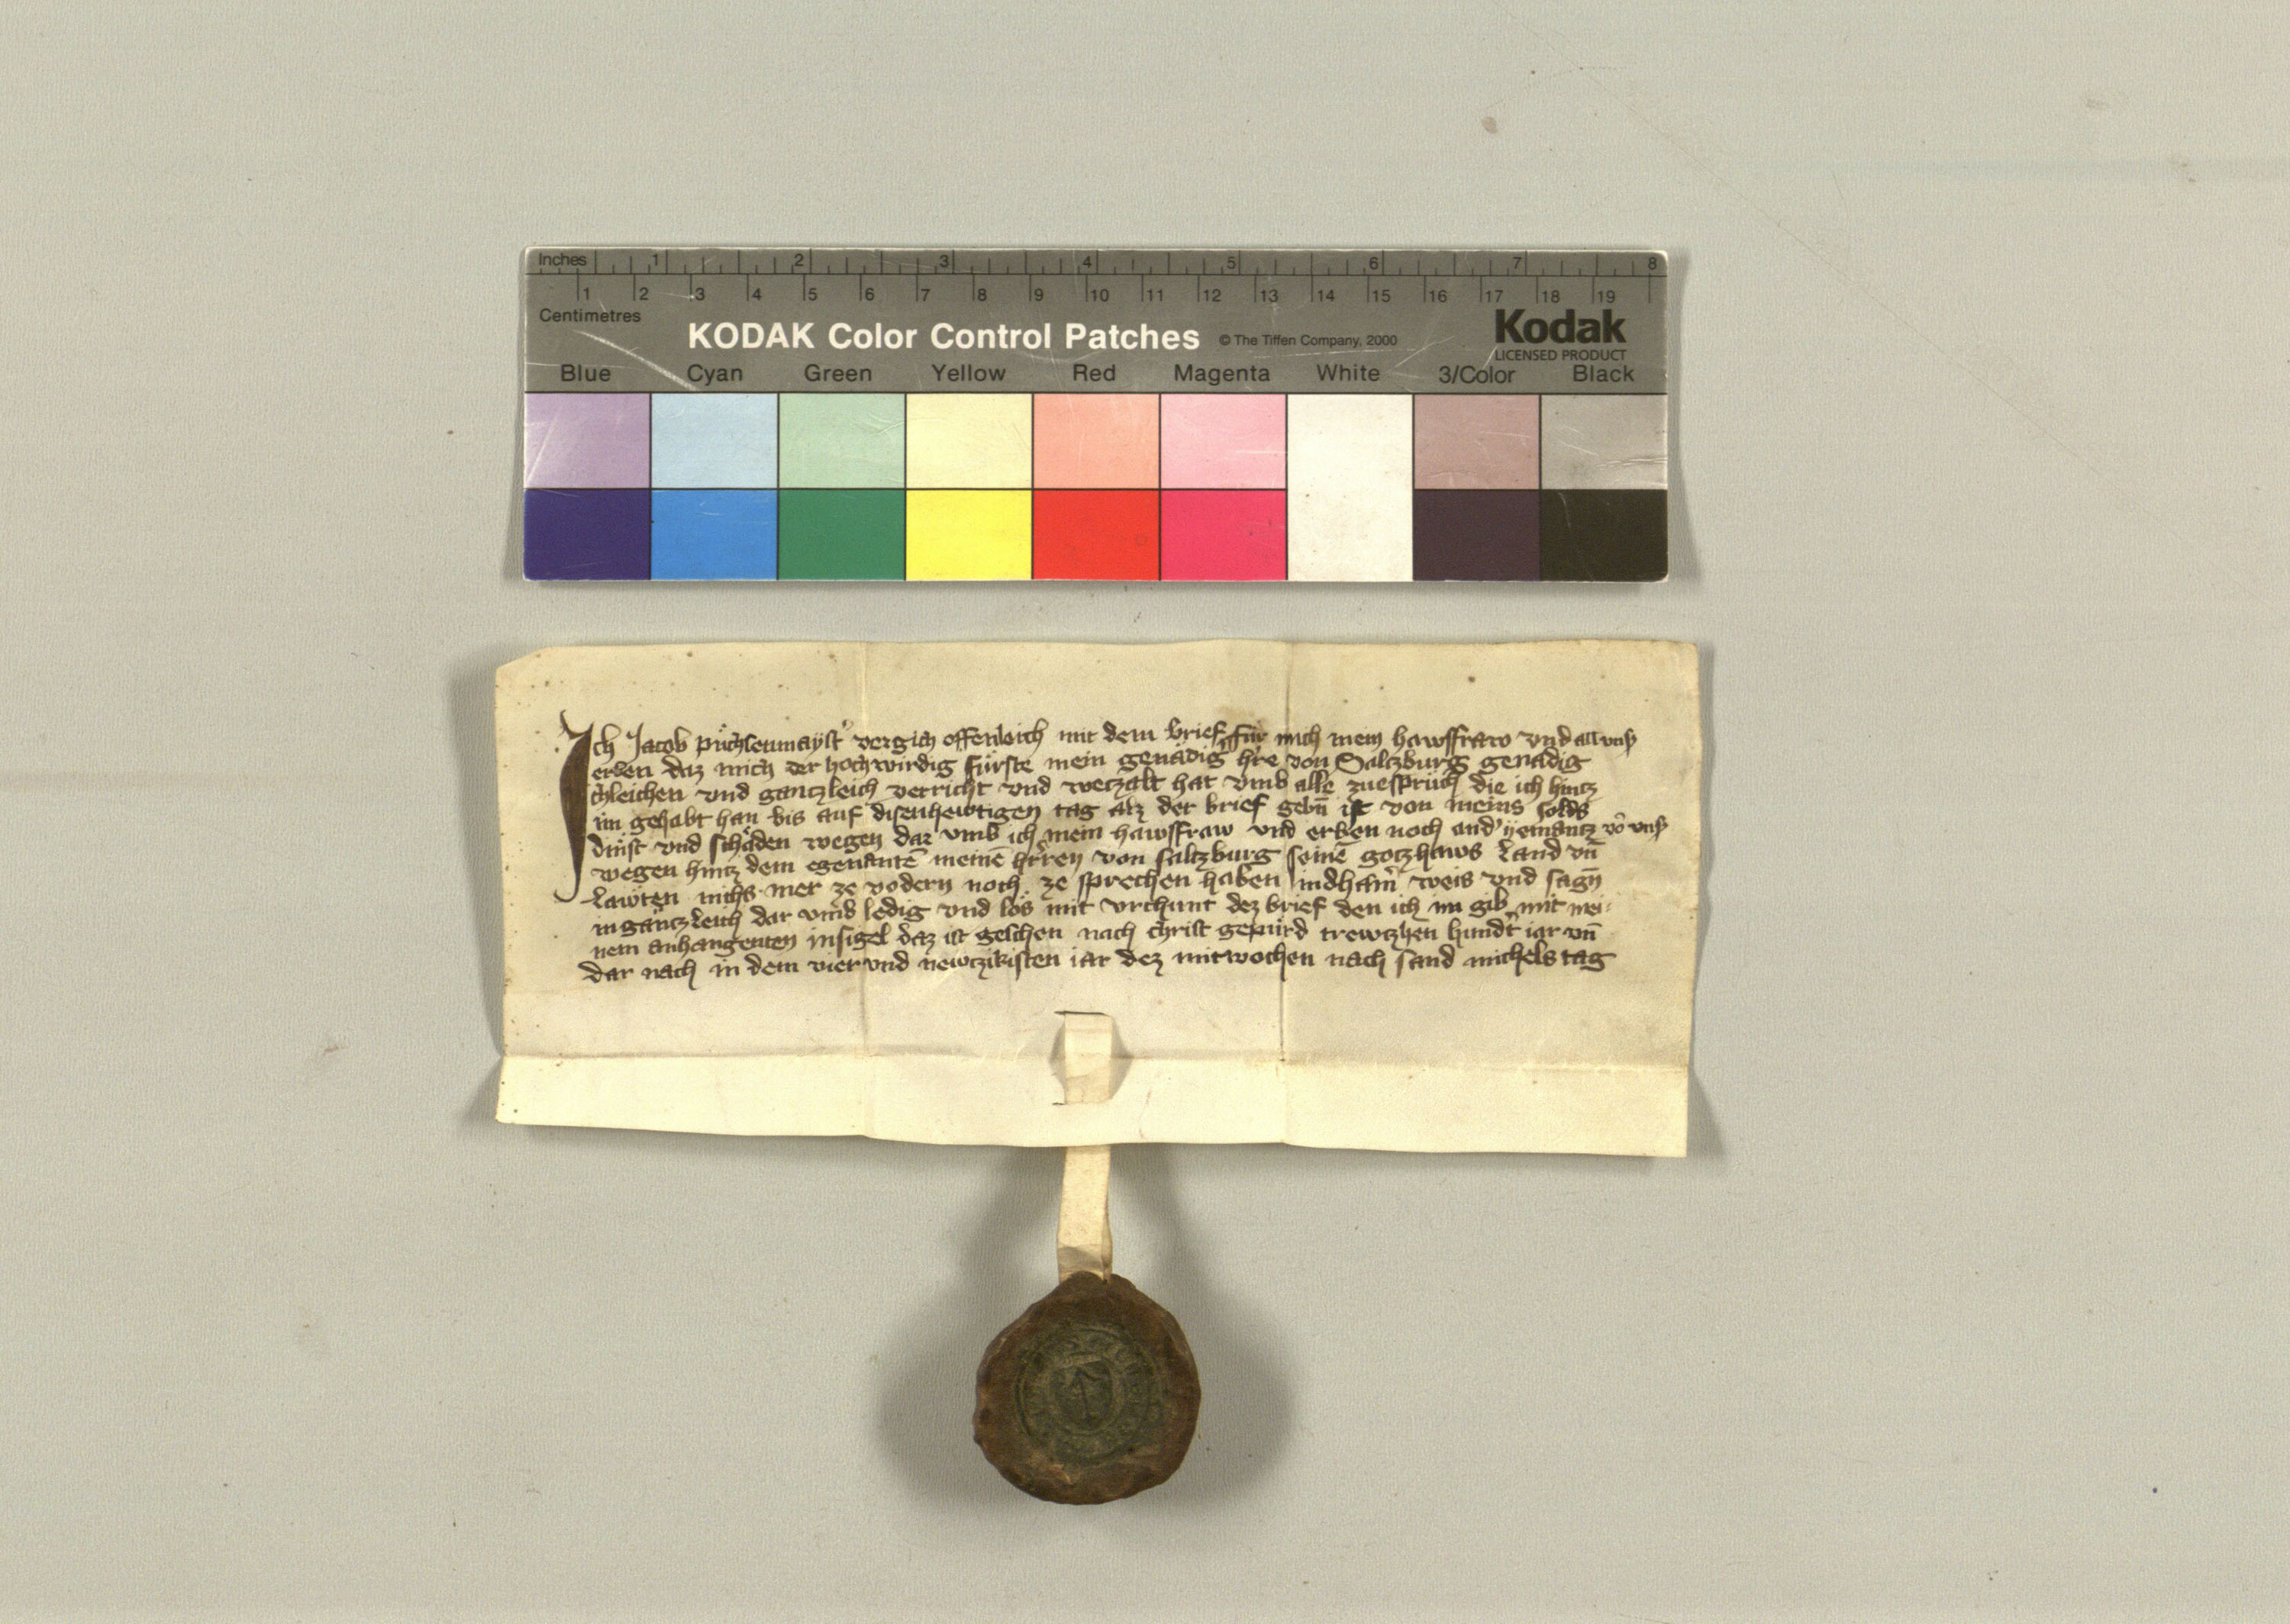 Inches 1 2 3 4 5 6 7 8
1 2 3 4 5 6 7 8 9 10 11 12 13 14 15 16 17 18 19
Centimetres
KODAK Color Control Patches © The Tiffen Company, 2000 Kodak
LICENSED PRODUCT
Blue Cyan Green Yellow Red Magenta White 3/Color Black
Ich Jacob vergich offenleich mit dem brief für mich mein hawsfraw vnd all
erben daz mich der hochwirdig fürste mein genädig hre von Salczburg genädig
chleichen vnd ganczleich verricht vnd weczalt hat vmb alle zuesprüch die ich hincz
im gehabt han bis auf disen hewtigen tag alz der brief gebn̄ ist von meins solds
dinst vnd schäden wegen dar vmb ich mein hawsfraw vnd erben noch and' yemancz
wegen hincz dem egenantē meinē hr̄ren von salczburg seinē goczhaws land vn̄
lawten nichs mer ze vodern noch ze sprechen haben in dhain̄ weis vnd sagn̄
in gänczleich dar vmb ledig vnd los mit vrchunt dez brief den ich im gib mit mei
nem anhangenten insigel daz ist geschen nach christ gepürd trewczhen hundt iar vn̄
dar nach in dem vier vnd newczikisten iar dez mitwochen nach sand michels tag